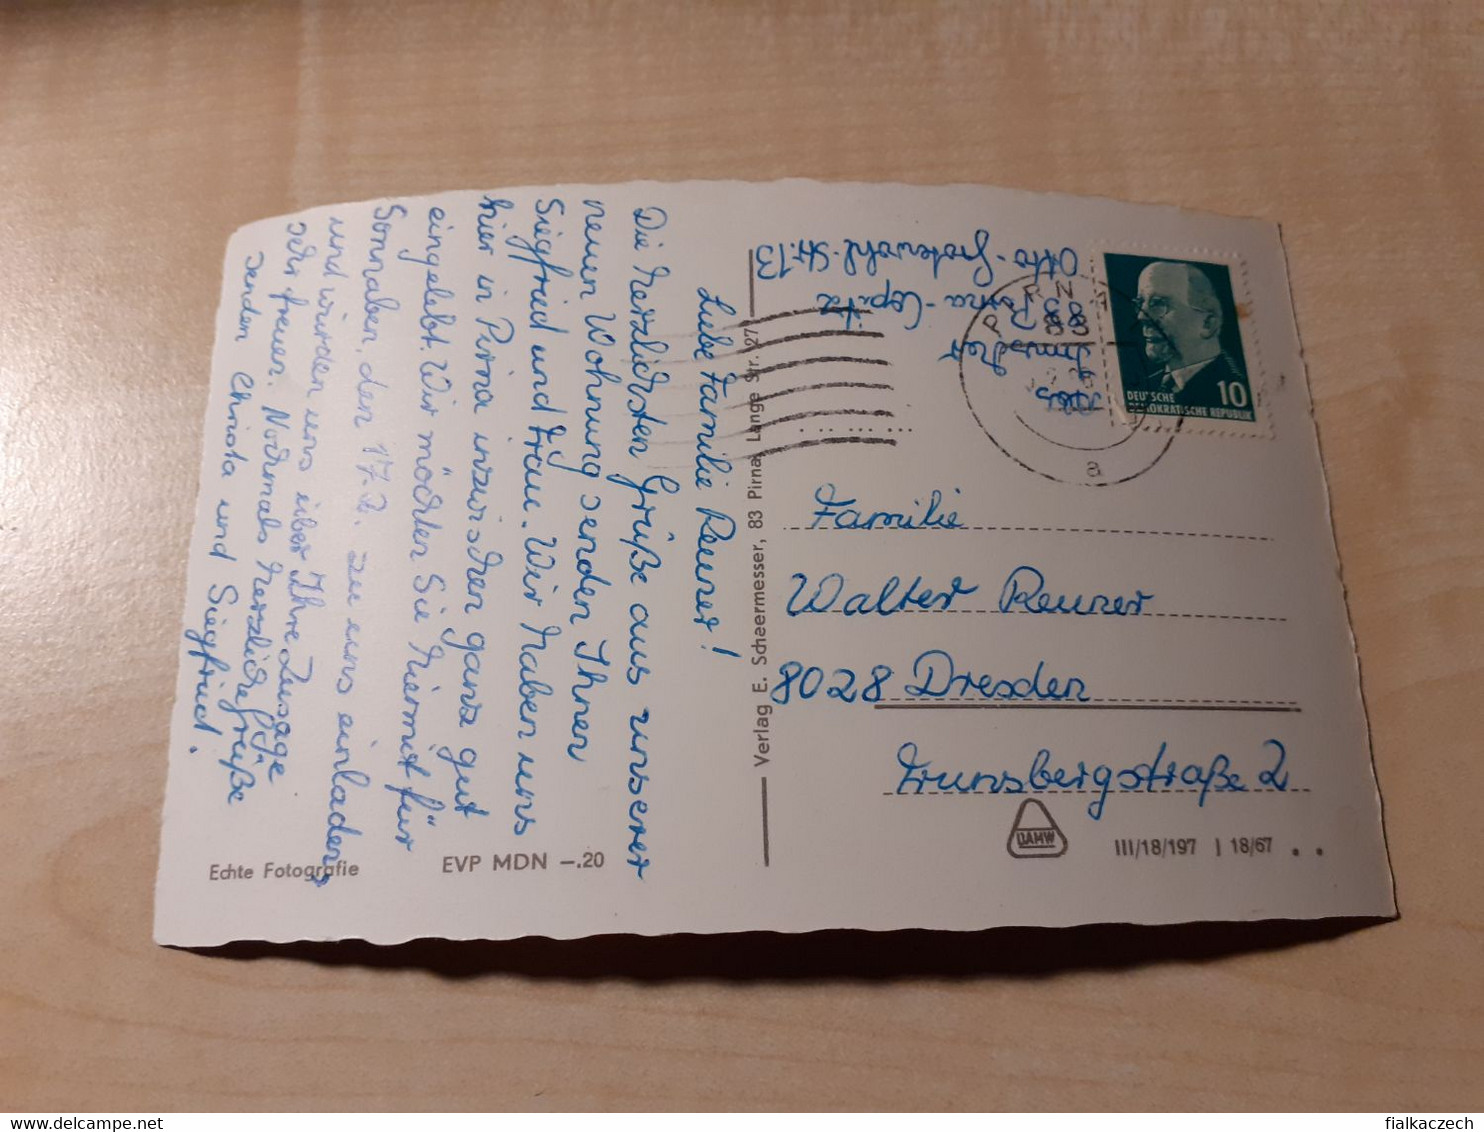 Liebe Familie Renner!
Die herzlichsten Grüße aus unserer
neuen Wohnung senden Ihnen
Siegfried und Frau. Wir haben uns
hier in Pirna inzwischen ganz gut
eingelebt. Wir möchten Sie hiermit für
Sonnaben, den 17.2. zu uns einladen
und würden uns über Ihre Zusage
sehr freuen. Nochmals herzliche Grüße
senden Christa und Siegfried.
Echte Fotografie
EVP MDN –.20
Verlag E. Schaermesser, 83 Pirna, Lange Str. 27
Abs
83 Pirna-Copitz
Otto-Grotewohl-Str. 13
PIRNA
a
DEUTSCHE
DEMOKRATISCHE REPUBLIK
10
Familie
Walter Renner
8028 Dresden
Frunsbergstraße 2
DAMW
III/18/197 I 18/67
delcampe.net
fialkaczech